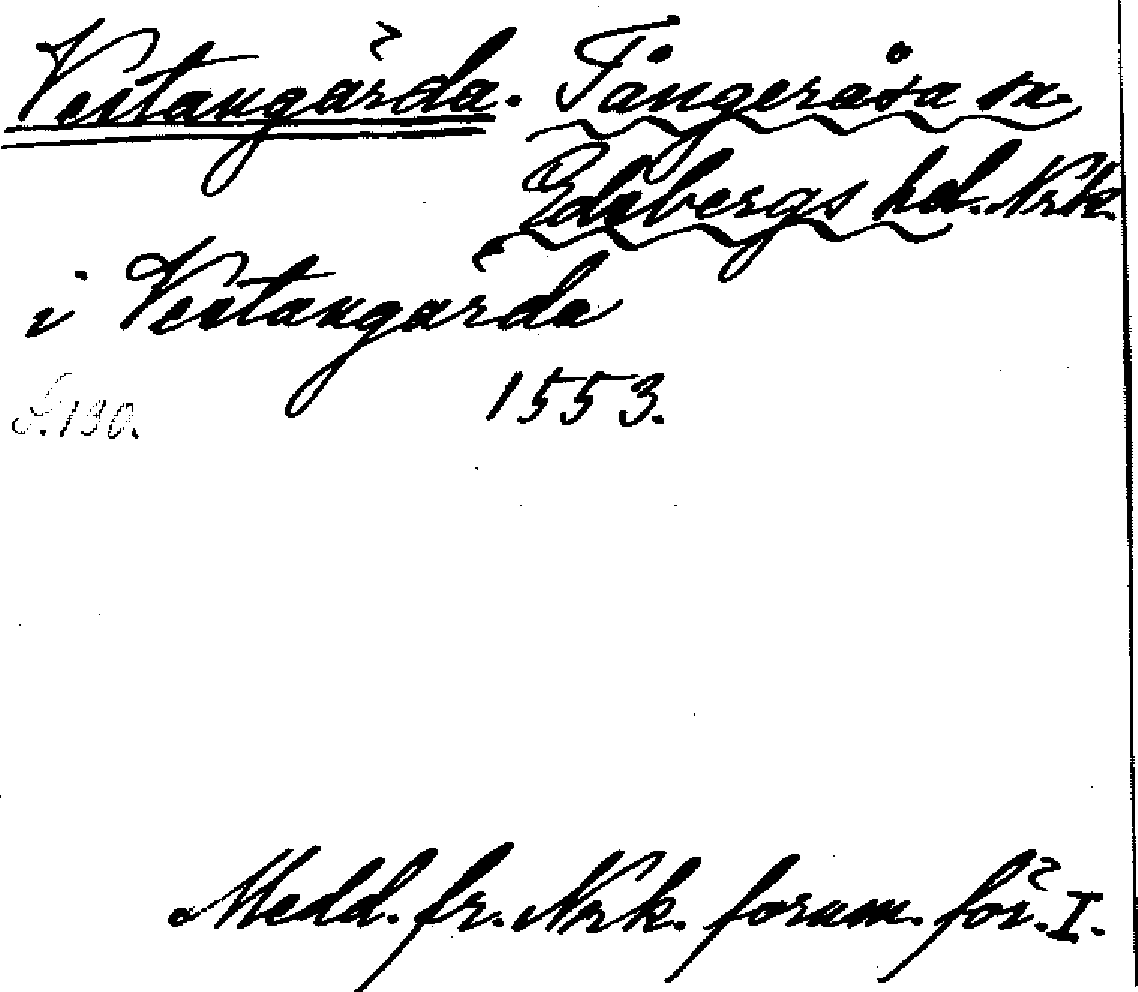 Vestangärda. Tångeråsa sn.
Edsbergs hd. Nrk.
i Vestangärda
S. 130. 1553.
Medd. fr. Nrk. fornm. för. I.